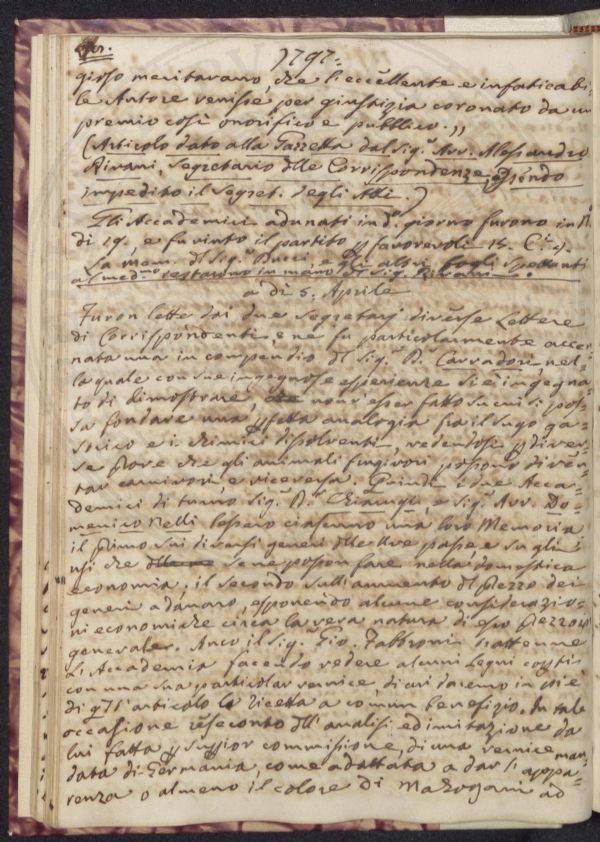 1797.
gioso meritavano, che l'eccellente e infaticabi-
le Autore venisse per giustizia coronato da un
premio così onorifico e pubblico.,,
(Articolo dato alla Gazzetta dal Sig.r Avv. Alessandro
Rivani, Segretario dlle Corrispondenze, essendo
impedito il Segret. degli Atti.)
Gli Accademici adunati in d.o giorno furono in N.
di 19, e fu vinto il partito p favorevoli 15.
La mem. del Sig.r Bucci, e gli altri fogli spettanti
al med.mo restarono in mano del Sig. Rivani.
a dì 5. Aprile
Furon lette dai due Segretarj diverse Lettere
di Corrispondenti, e ne fu particolarmente accen-
nata una in compendio dl Sig.r D.r Carradori, nel-
la quale con sue ingegnose esperienze si è ingegna-
to di dimostrare, non esser fatto sucnsi pos-
sa fondare una pfetta analogia fra il sugo ga-
strico e i chimici dissolventi, vedendosi p diver-
se prove che gli animali frugivori possono diven-
tar carnivori, e viceversa. Quindi i due Acca-
demici di turno, Sig.r D.r Chiarugi, e Sig.r Avv. Do-
menico Nelli lessero ciascuno una loro Memoria
il primo sui diversi generi dlle Uve passe, e sugli
usi che se ne posson fare nella domestica
economia; il secondo sull'aumento dl prezzo dei
generi a danaro, esponendo alcune considerazio-
ni economiche circa la vera natura di esso prezzo in
generale. Anco il Sig.r Gio. Fabbroni trattenne
l'Accademia facendo vedere alcuni Legni coperti
con una sua particolar vernice, di cui daremo in piè
di q.to articolo la ricetta a comun benefizio. In tale
occasione rese conto dll'analisi ed imitazione da
lui fatta p superior commissione, di una vernice man-
data di Germania, come adattata a dar l'appa-
renza o almeno il colore di Mahogani ad